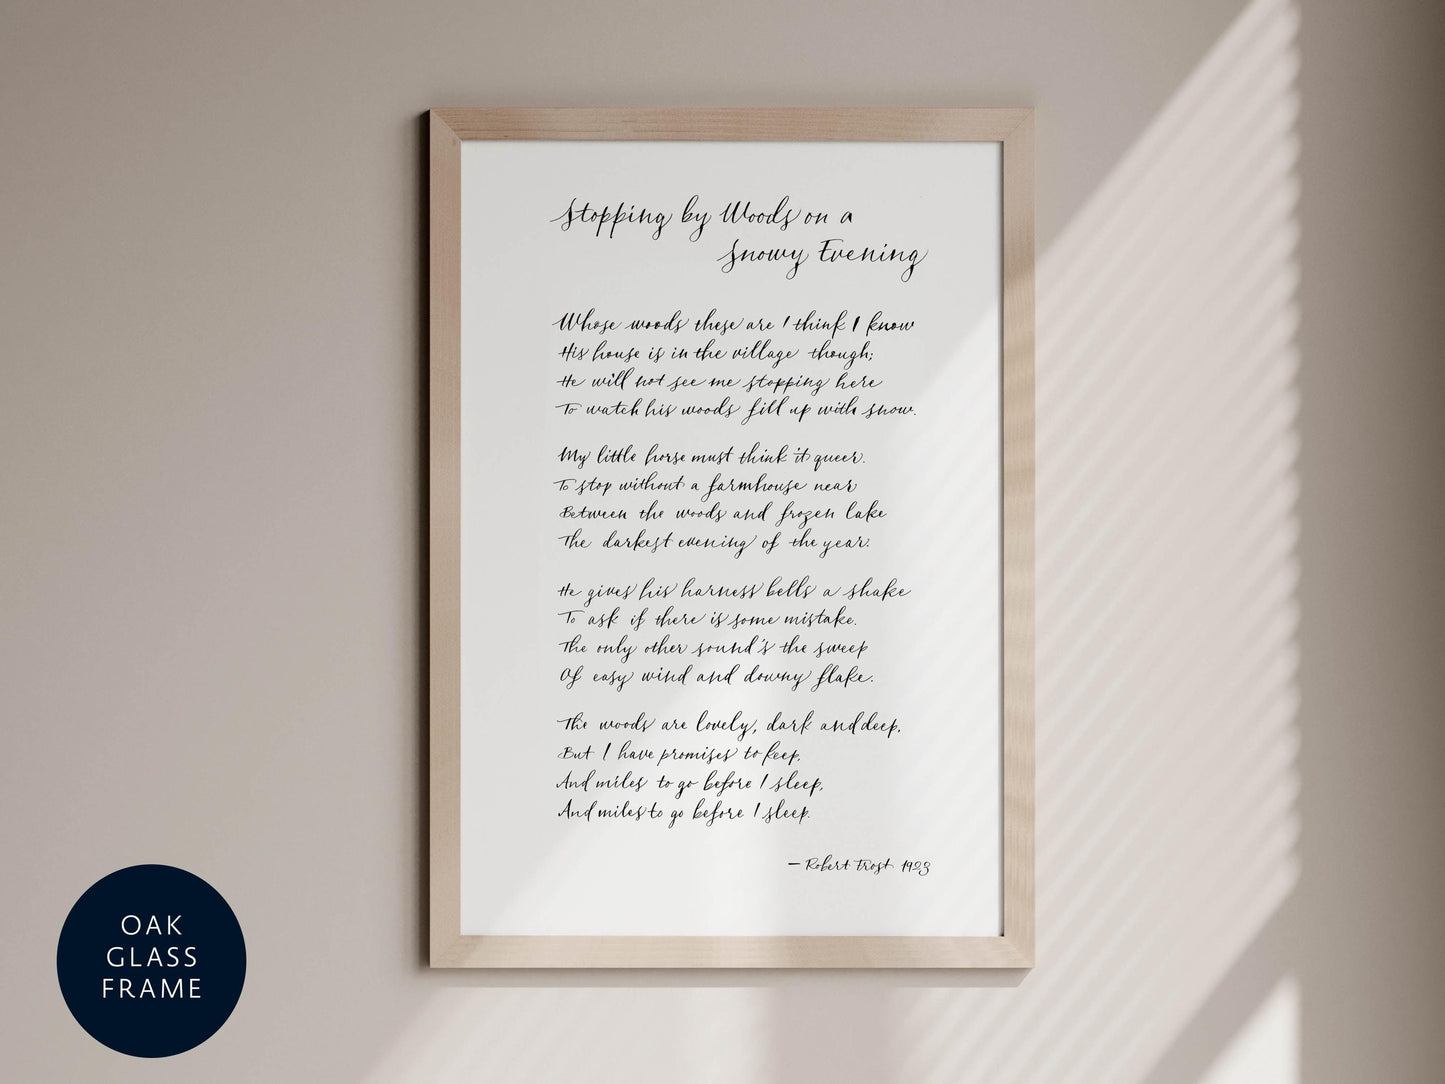 Stopping by Woods on a
Snowy Evening
Whose woods these are I think I know
His house is in the village though;
He will not see me stopping here
To watch his woods fill up with snow.
My little horse must think it queer.
To stop without a farmhouse near
Between the woods and frozen lake
The darkest evening of the year.
He gives his harness bells a shake
To ask if there is some mistake.
The only other sound's the sweep
Of easy wind and downy flake.
The woods are lovely, dark and deep,
But I have promises to keep,
And miles to go before I sleep,
And miles to go before I sleep.
— Robert Frost 1923
OAK
GLASS
FRAME